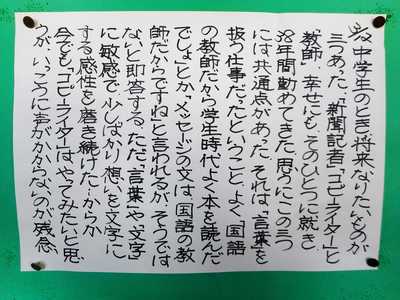 中学生のとき、将来なりたいものが
三つあった。「新聞記者」「コピーライター」と
「教師」。幸せにも、そのひとつに就き、
38年間勤めてきた。思うに、この三つ
には共通点があった。それは、「言葉」を
扱う仕事だったということ。よく、「国語
の教師だから学生時代よく本を読んだ
でしょ」とか「メッセージの文は、国語の教
師だからですね」と言われるが、そうでは
ないと即答する。ただ、「言葉」や「文字」
に敏感で、少しばかり想いを文字に
する感性を磨き続けた…からか
今でも「コピーライター」は、やってみたいと思
うが、いっこうに声がかからないのが残念。